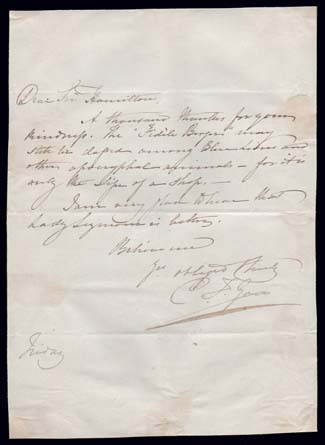 Dear Sir Hamilton,
A thousand thanks for your
kindness. The "Fidele Berger" may
still be classed among Blue Lions and
other apocryphal animals - for it is
only the sign of a shop. -
I am very glad to hear that
Lady Seymour is better,
Believe me
Yrs obliged
Friday